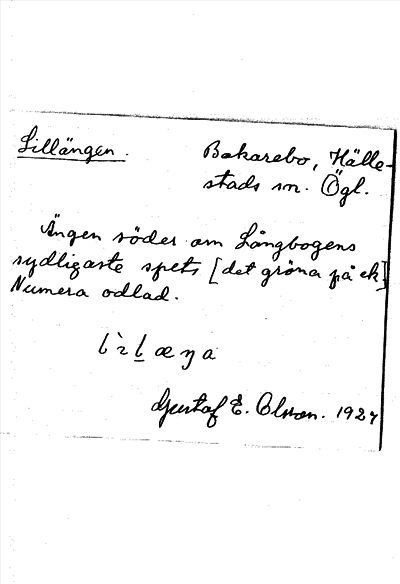 Lillängen. Bakarebo, Hälle-
stads sn. Ögl.
Ängen söder om Långbogens
sydligaste spets [det gröna på ek]
Numera odlad.
Gustaf E. Olsson. 1927